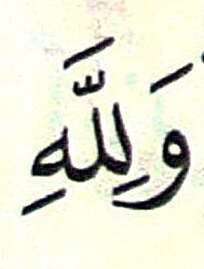 وَلِلَّهِ